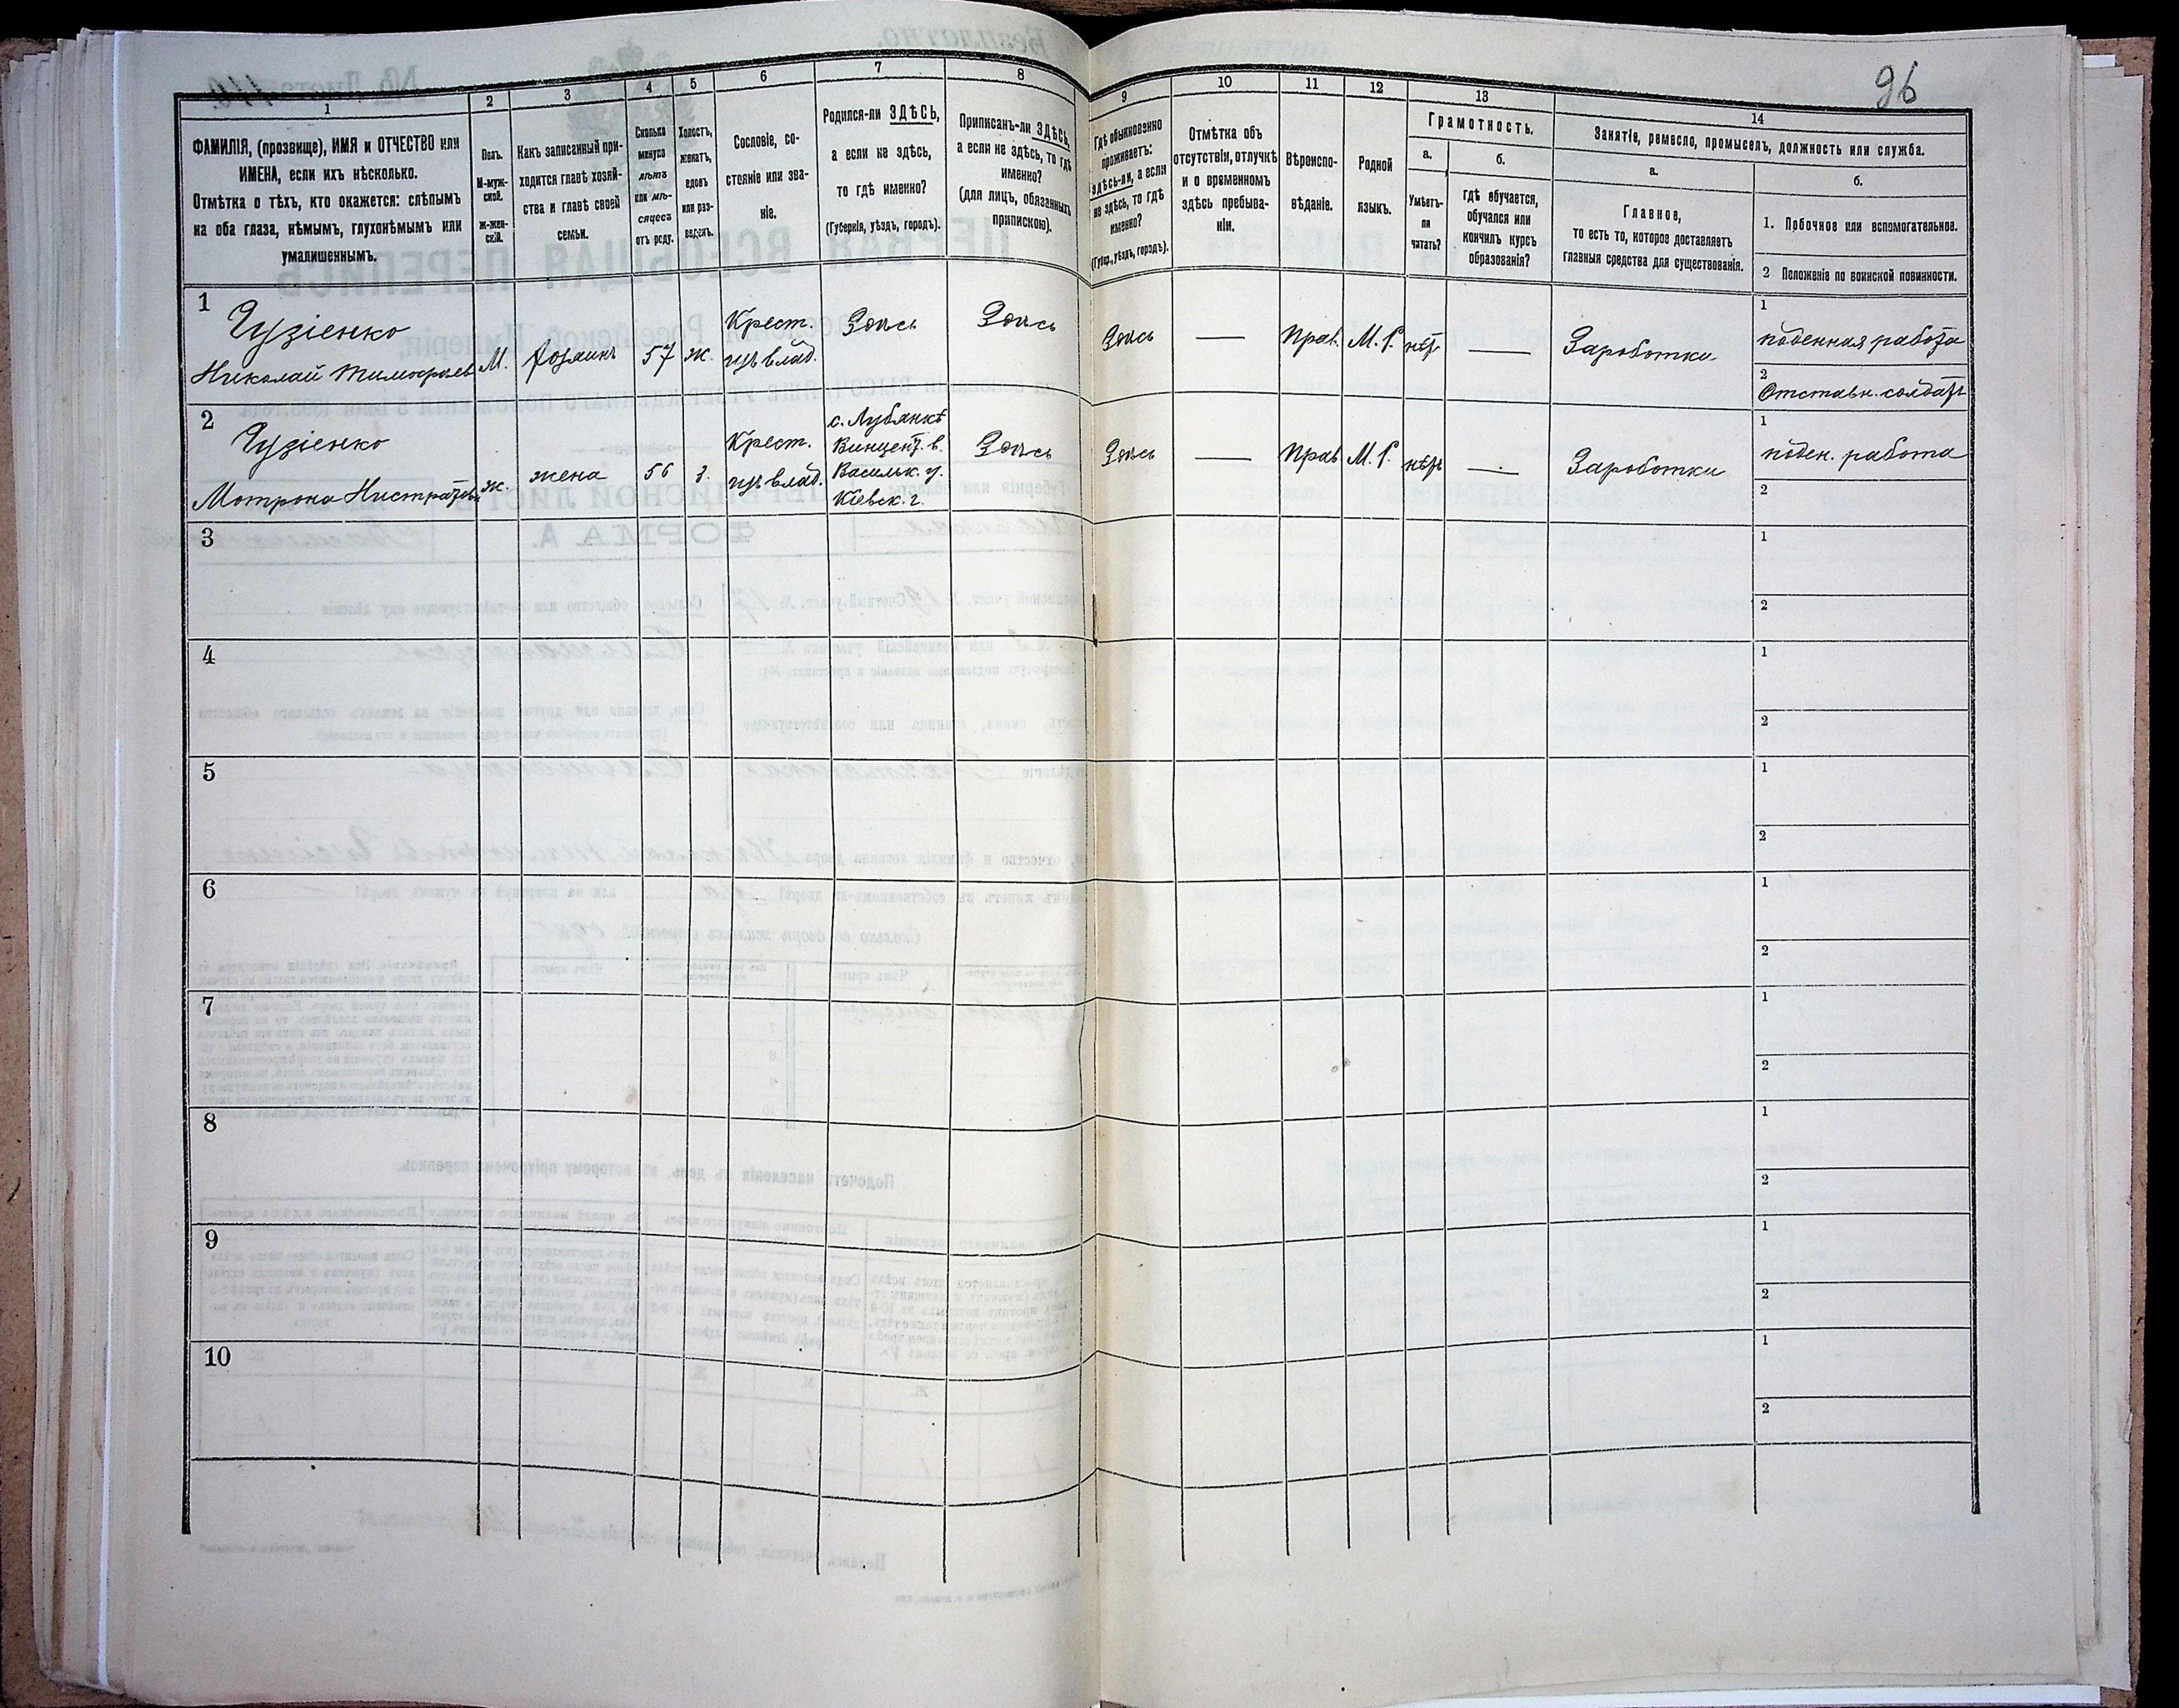 96
1 2 3 4 5 6 7 8 9 10 11 12 13 14
ФАМИЛІЯ, (прозвище), ИМЯ и ОТЧЕСТВО или
ИМЕНА, если ихъ нѣсколько.
Отмѣтка о тѣхъ, кто окажется: слѣпымъ
на оба глаза, нѣмымъ, глухонѣмымъ или
умалишеннымъ.
Полъ.
М-муж-
ской.
Ж-жен-
скій.
Какъ записанный при-
ходится главѣ хозяй-
ства и главѣ своей
семьи.
Сколько
минуло
лѣтъ
или мѣ-
сяцевъ
отъ роду.
Холостъ,
женатъ,
вдовъ
или раз-
веденъ.
Сословіе, со-
стояніе или зва-
ніе.
Родился-ли ЗДѢСЬ,
а если не здѣсь,
то гдѣ именно?
(Губернія, уѣздъ, городъ).
Приписанъ-ли ЗДѢСЬ,
а если не здѣсь, то гдѣ
именно?
(для лицъ, обязанныхъ
припискою).
Гдѣ обыкновенно
проживаетъ:
здѣсь-ли, а если
не здѣсь, то гдѣ
именно?
(Губер., уѣздъ, городъ).
Отмѣтка объ
отсутствіи, отлучкѣ
и о временномъ
здѣсь пребыва-
ніи.
Вѣроиспо-
вѣданіе.
Родной
языкъ.
Грамотность.
а.
Умѣетъ-
ли
читать?
б.
Гдѣ обучается,
обучался или
кончилъ курсъ
образованія?
Занятіе, ремесло, промыселъ, должность или служба.
а.
Главное,
то есть то, которое доставляетъ
главныя средства для существованія.
б.
1. Побочное или вспомогательное.
2 Положеніе по воинской повинности.
1
Гузіенко
Николай Тимофѣев
М.
хозяинъ
57
ж.
Крест.
изъ влад.
Здѣсь
Здѣсь
Здѣсь
—
Прав.
М. Р.
нѣтъ
—
Заработки
1
поденная работа
2
Отставн. солдатъ
2
Гузіенко
Мотрона
ж.
жена
56
з.
Крест.
изъ влад.
с. Лубянкѣ
Винцент. в.
Васильк. у.
Кіевск. г.
Здѣсь
Здѣсь
—
Прав
М. Р.
нѣтъ
—
Заработки
1
поден. работа
2
3
1
2
4
1
2
5
1
2
6
1
2
7
1
2
8
1
2
9
1
2
10
1
2